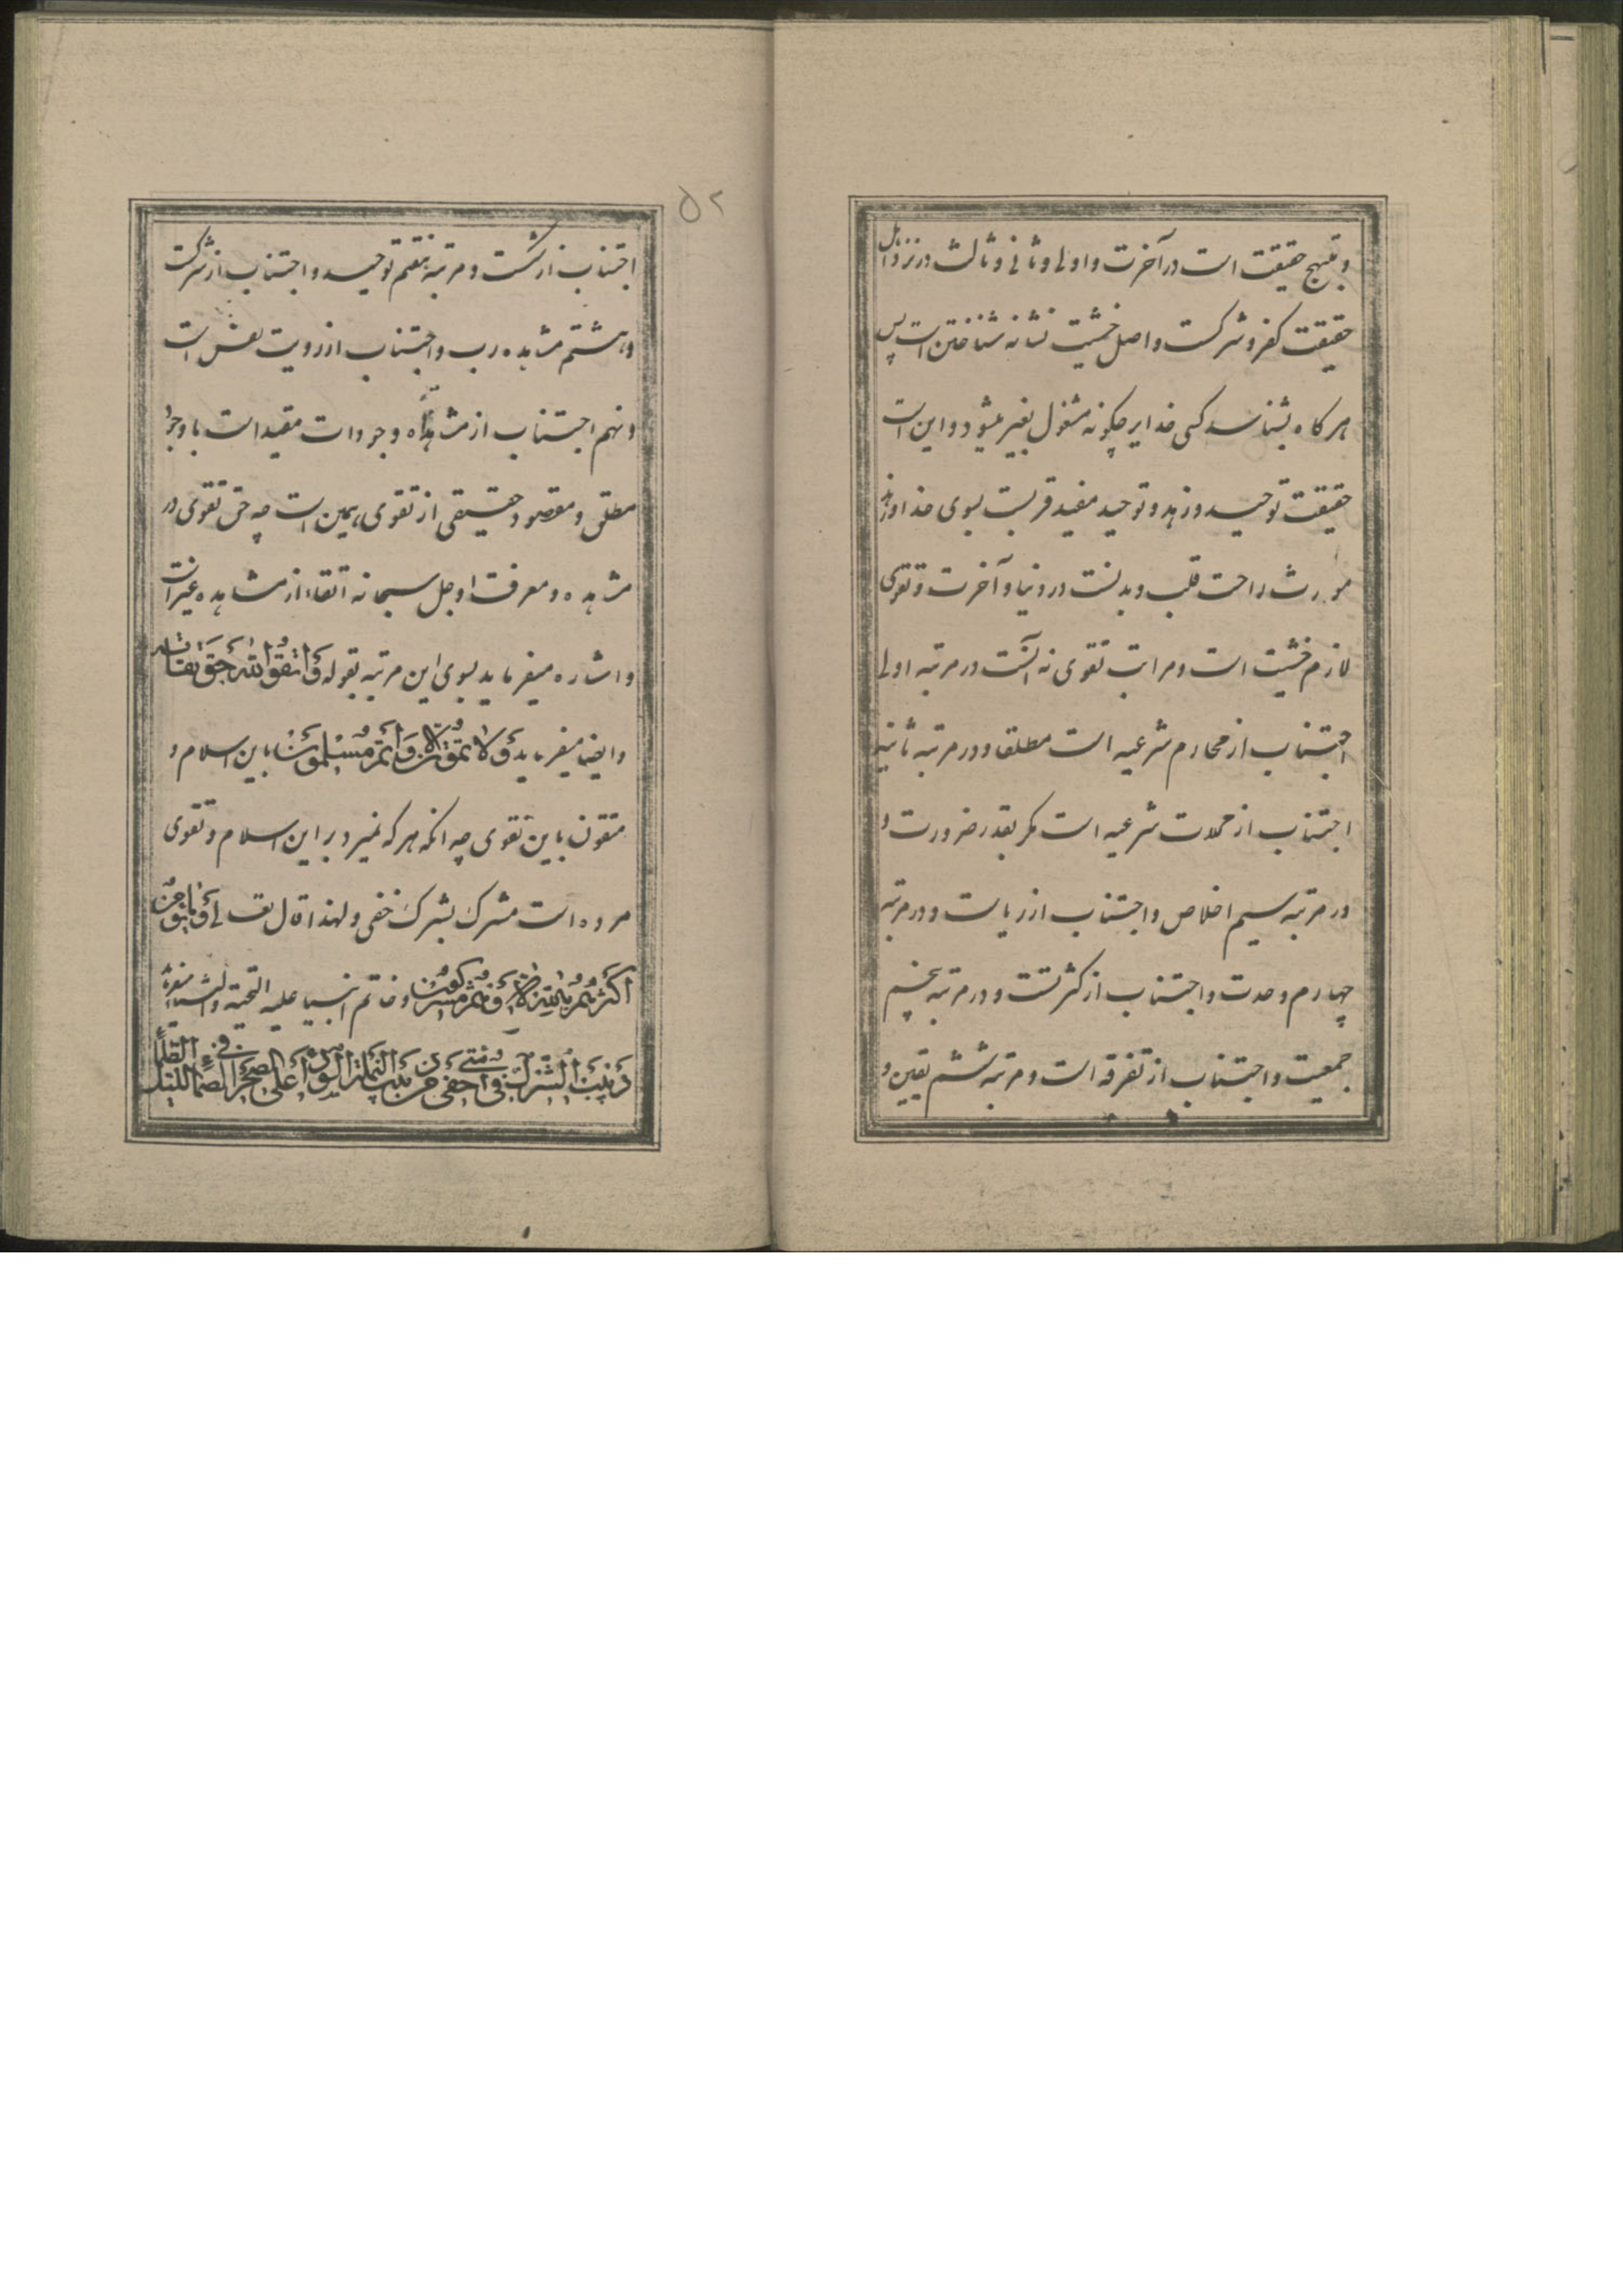 و قبیح حقیقت است در آخرت و اولی و ثانی و ثالث در نزد اهل
حقیقت کفر و شرکست و اصل خشیت نشانه شناختن است پس
هر کاه بشناسد کسی خدایرا چکونه مشغول بغیر میشود و این است
حقیقت توحید و زهد و توحید مفید قربست بسوی خداوند
مورث راحت قلب و بدنست در دنیا و آخرت و تقوی
لازم خشیت است و مراتب تقوی نه آنست در مرتبه اولی
اجتناب از محارم شرعیه است مطلقا و در مرتبه ثانیه
اجتناب از محللات شرعیه است مکر بقدر ضرورت و
در مرتبه سیم اخلاص و اجتناب از ریاست و در مرتبه
چهارم وحدت و اجتناب از کثرتست و در مرتبه پنجم
جمعیت و اجتناب از تفرقه است و مرتبه ششم یقین و
۵۲
اجتناب از شکست و مرتبه هفتم توحید و اجتناب از شرکست
و هشتم مشاهده رب و اجتناب از رویت نفس است
و نهم اجتناب از مشاهده وجودات مقید است با وجود
مطلق و مقصود حقیقی از تقوی همین است چه حق تقوی در
مشاهده و معرفت او جل سبحانه اتقاء از مشاهده غیر است
و اشاره میفرماید بسوی این مرتبه بقوله وَاتَّقُوا اللهَ حَقَّ تُقَاتِهِ
و ایضا میفرماید وَلَا تَمُوتُنَّ اِلَّا وَاَنْتُمْ مُسْلِمُونَ باین اسلام و
متقون باین تقوی چه آنکه هر که نمیرد بر این اسلام و تقوی
مرده است مشرک بشرک خفی و لهذا قال تعالی وَمَا يُؤْمِنُ
اَكْثَرُهُمْ بِاللهِ اِلَّا وَهُمْ مُشْرِكُونَ و خاتم انبیا علیه التحیة والثنا میفرماید
دَبِيبُ الشِّرْكِ فِي اُمَّتِي اَخْفَى مِنْ دَبِيبِ النَّمْلَةِ السَّوْدَاءِ عَلَى الصَّخْرَةِ الصَّمَّاءِ فِي اللَّيْلَةِ الظَّلْمَاءِ